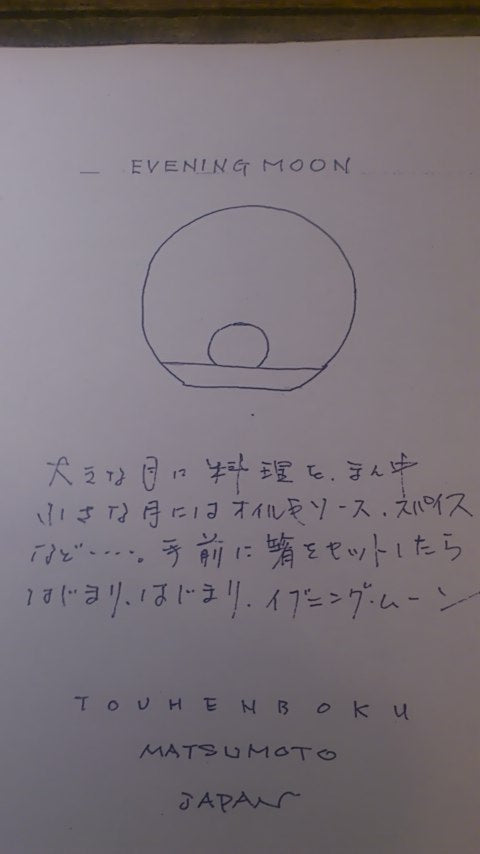 EVENING MOON
大きな月に料理を、まん中
小さな月にはオイルやソース、スパイス
など……。手前に箸をセットしたら
はじまり、はじまり、イブニング・ムーン
TOUHENBOKU
MATSUMOTO
JAPAN